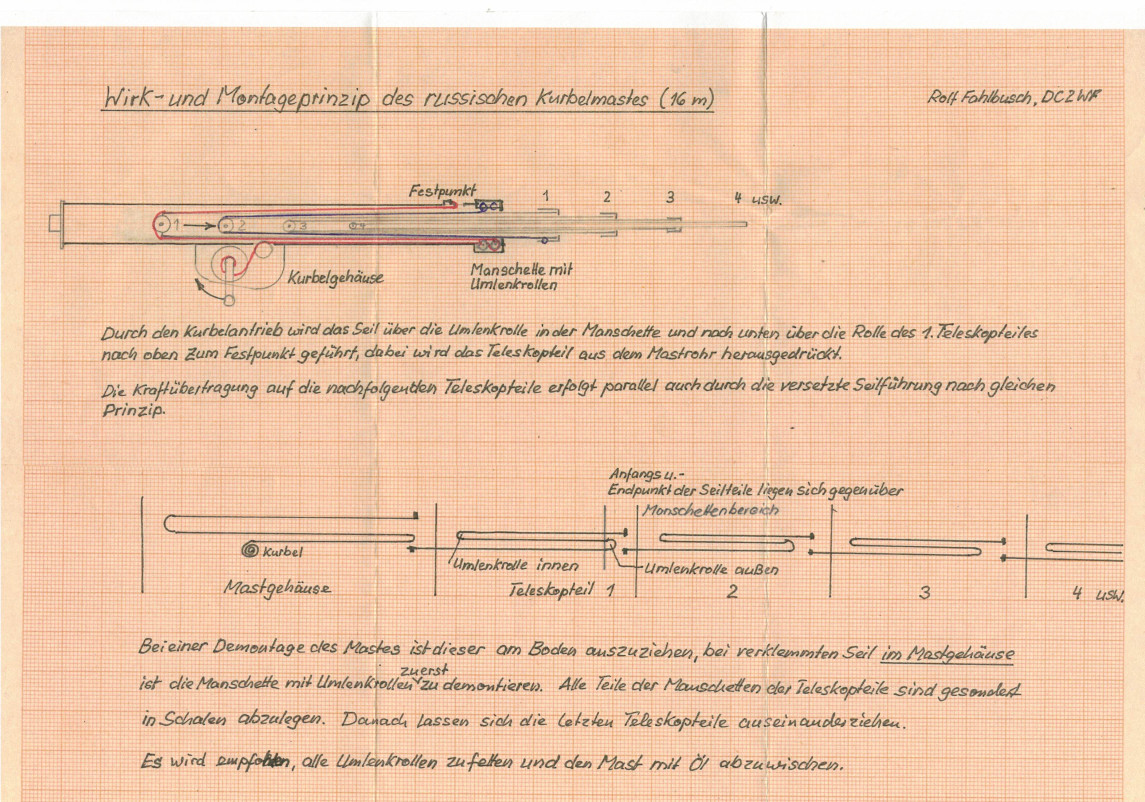 Wirk- und Montageprinzip des russischen Kurbelmastes (16 m)
Rolf Fahlbusch, DC2WF
Festpunkt
1 2 3 4 usw.
1 2 3 4
Kurbelgehäuse
Manschette mit
Umlenkrollen
Durch den Kurbelantrieb wird das Seil über die Umlenkrolle in der Manschette und nach unten über die Rolle des 1. Teleskopteiles
nach oben zum Festpunkt geführt, dabei wird das Teleskopteil aus dem Mastrohr herausgedrückt.
Die Kraftübertragung auf die nachfolgenden Teleskopteile erfolgt parallel auch durch die versetzte Seilführung nach gleichen
Prinzip.
Anfangs u.-
Endpunkt der Seilteile liegen sich gegenüber
Manschettenbereich
Kurbel
Umlenkrolle innen
Umlenkrolle außen
Mastgehäuse
Teleskopteil 1
2
3
4 usw.
Bei einer Demontage des Mastes ist dieser am Boden auszuziehen, bei verklemmten Seil im Mastgehäuse
zuerst
ist die Manschette mit Umlenkrollen zu demontieren. Alle Teile der Manschetten der Teleskopteile sind gesondert
in Schalen abzulegen. Danach lassen sich die letzten Teleskopteile auseinanderziehen.
Es wird empfohlen, alle Umlenkrollen zu fetten und den Mast mit Öl abzuwischen.